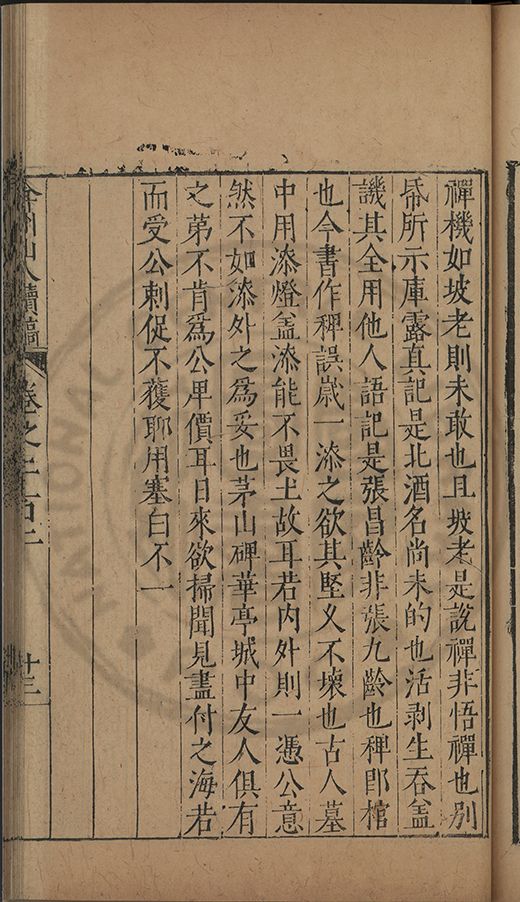 禪機如坡老則未敢也且坡老是說禪非悟禪也別
帋所示庫露真記是北酒名尚未的也活剥生吞盖
譏其全用他人語記是張昌齡非張九齡也稗即棺
也今書作稗誤歲一漆之欲其堅乂不壞也古人墓
中用漆燈盖漆能不畏土故耳若内外則一憑公意
然不如漆外之爲妥也茅山碑華亭城中友人俱有
之苐不肯爲公卑價耳日來欲掃聞見盡付之海若
而受公刺促不獲聊用塞白不一
弇州山人續稿 卷之二百二 廿三